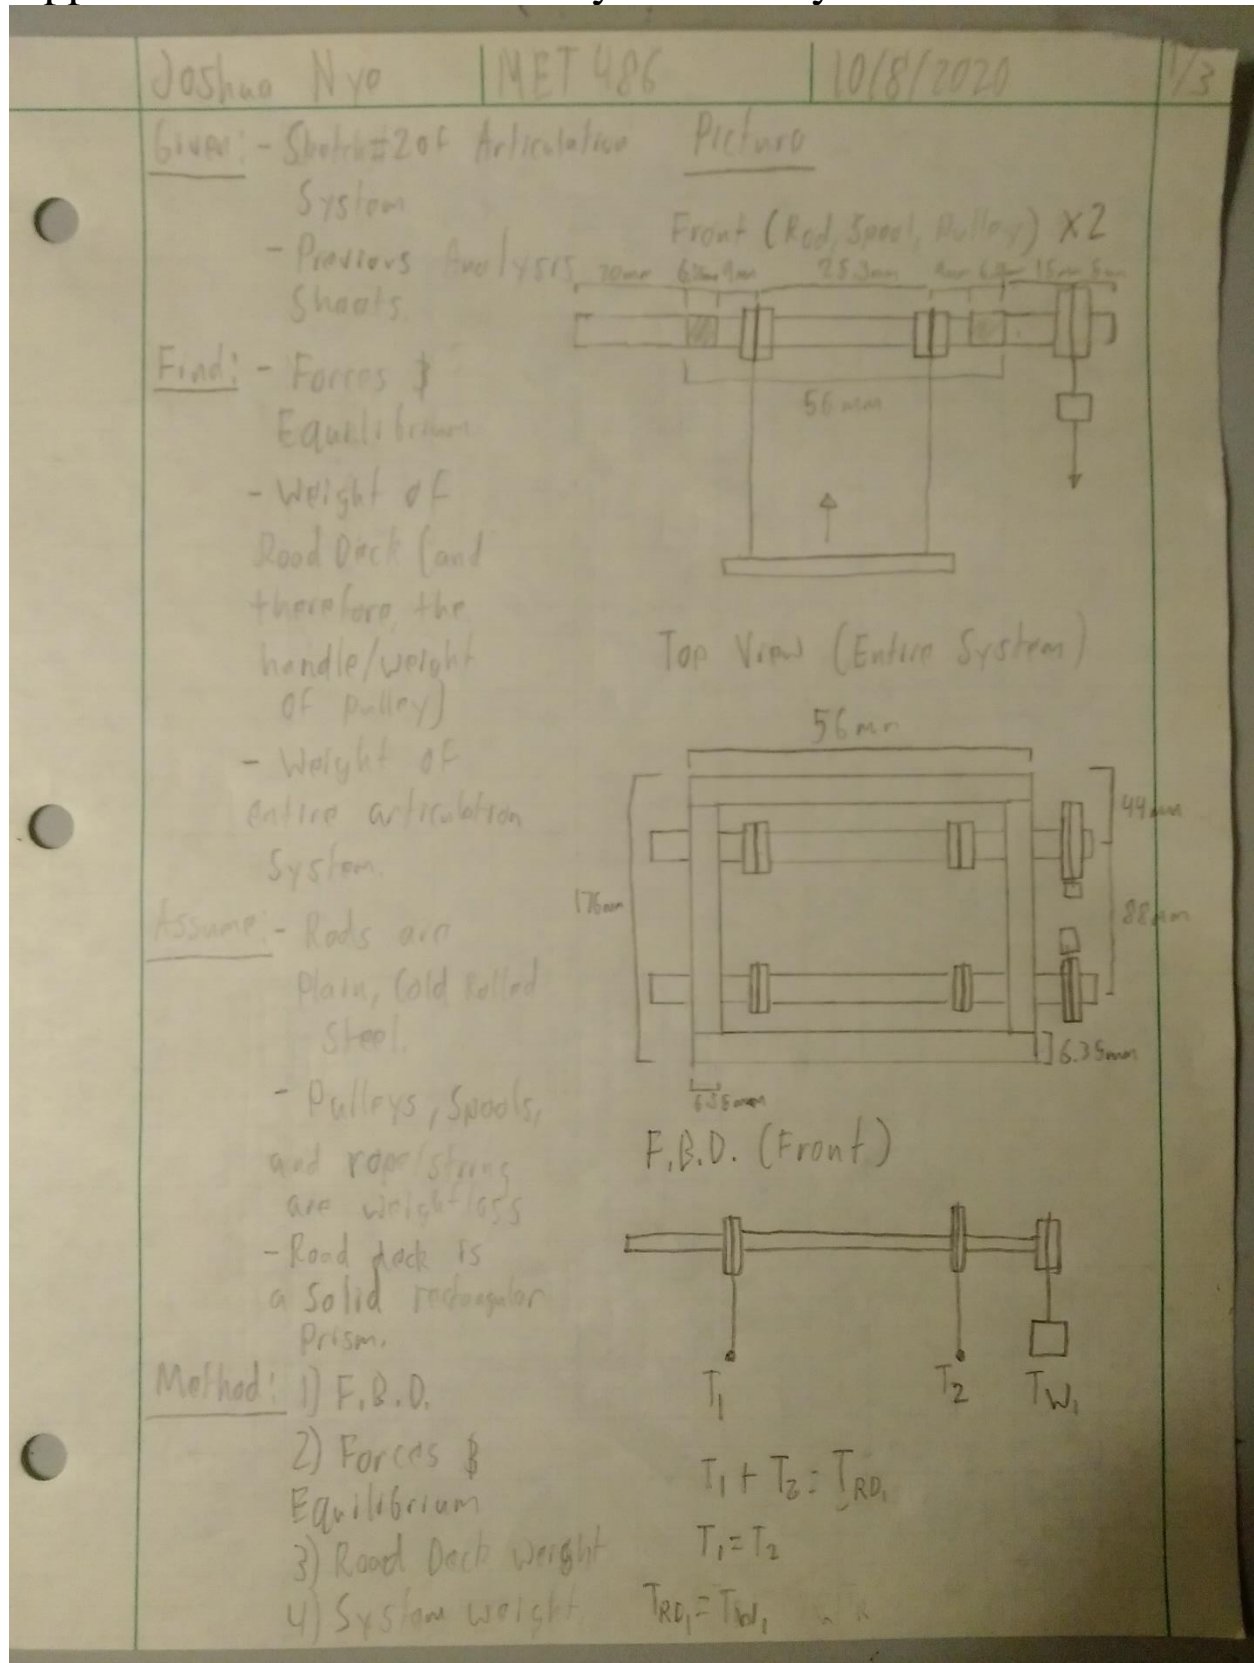 Joshua Nyo MET 486 10/8/2020 1/3
Given: - Sketch #2 of Articulation
System
- Previous Analysis
Sheets.
Find: - Forces &
Equilibrium
- Weight of
Road Deck (and
therefore, the
handle/weight
of pulley)
- Weight of
entire articulation
System.
Assume: - Rods are
Plain, Cold Rolled
Steel.
- Pulleys, Spools,
and rope/string
are weightless
- Road deck is
a Solid rectangular
Prism.
Method: 1) F.B.D.
2) Forces &
Equilibrium
3) Road Deck weight
4) System weight
Picture
Front (Rod, Spool, Pulley) x2
56 mm
Top View (Entire System)
56 mm
44mm
176mm
88mm
6.35mm
F.B.D. (Front)
T1 T2 TW1
T1 + T2 = TRD1
T1 = T2
TRD1 = TW1